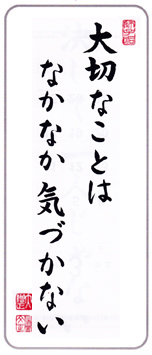 大切なことは
なかなか気づかない